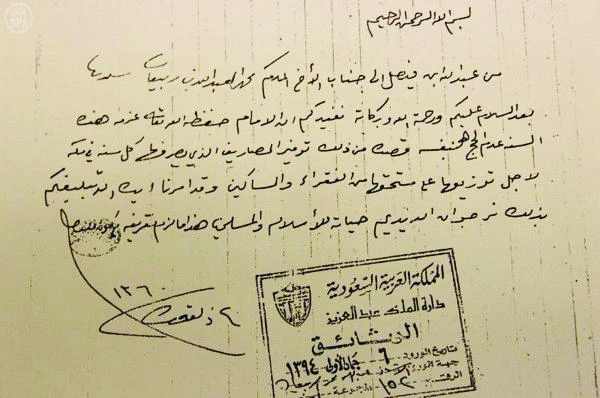 بسم الله الرحمن الرحيم
من عبدالله ابن فيصل الى جناب الأخ المكرم محمد العبدالله بن ربيعان سلمه
بعد السلام عليكم ورحمة الله وبركاته نفيدكم ان الامام حفظه الله تعالى عزم هذه
السنة عدم الحج بنفسه قصده من ذلك توفير المصاريف الذي يصرفها كل سنة في مكة
لاجل توزيعها على مستحقها من الفقراء والمساكين وقد امرنا تبليغكم
بذلك نرجو ان الله يديم حياته للأسلام والمسلمين هذا مالزم تعريفه
٢ ذ لقعدة
١٣٦٠
المملكة العربية السعودية
دارة الملك عبد العزيز
الوثائق
تاريخ الورود: ٦ جمادى الأولى ١٣٩٤
جهة الورود
الرقم ١٥٢ المجموعة
SPA